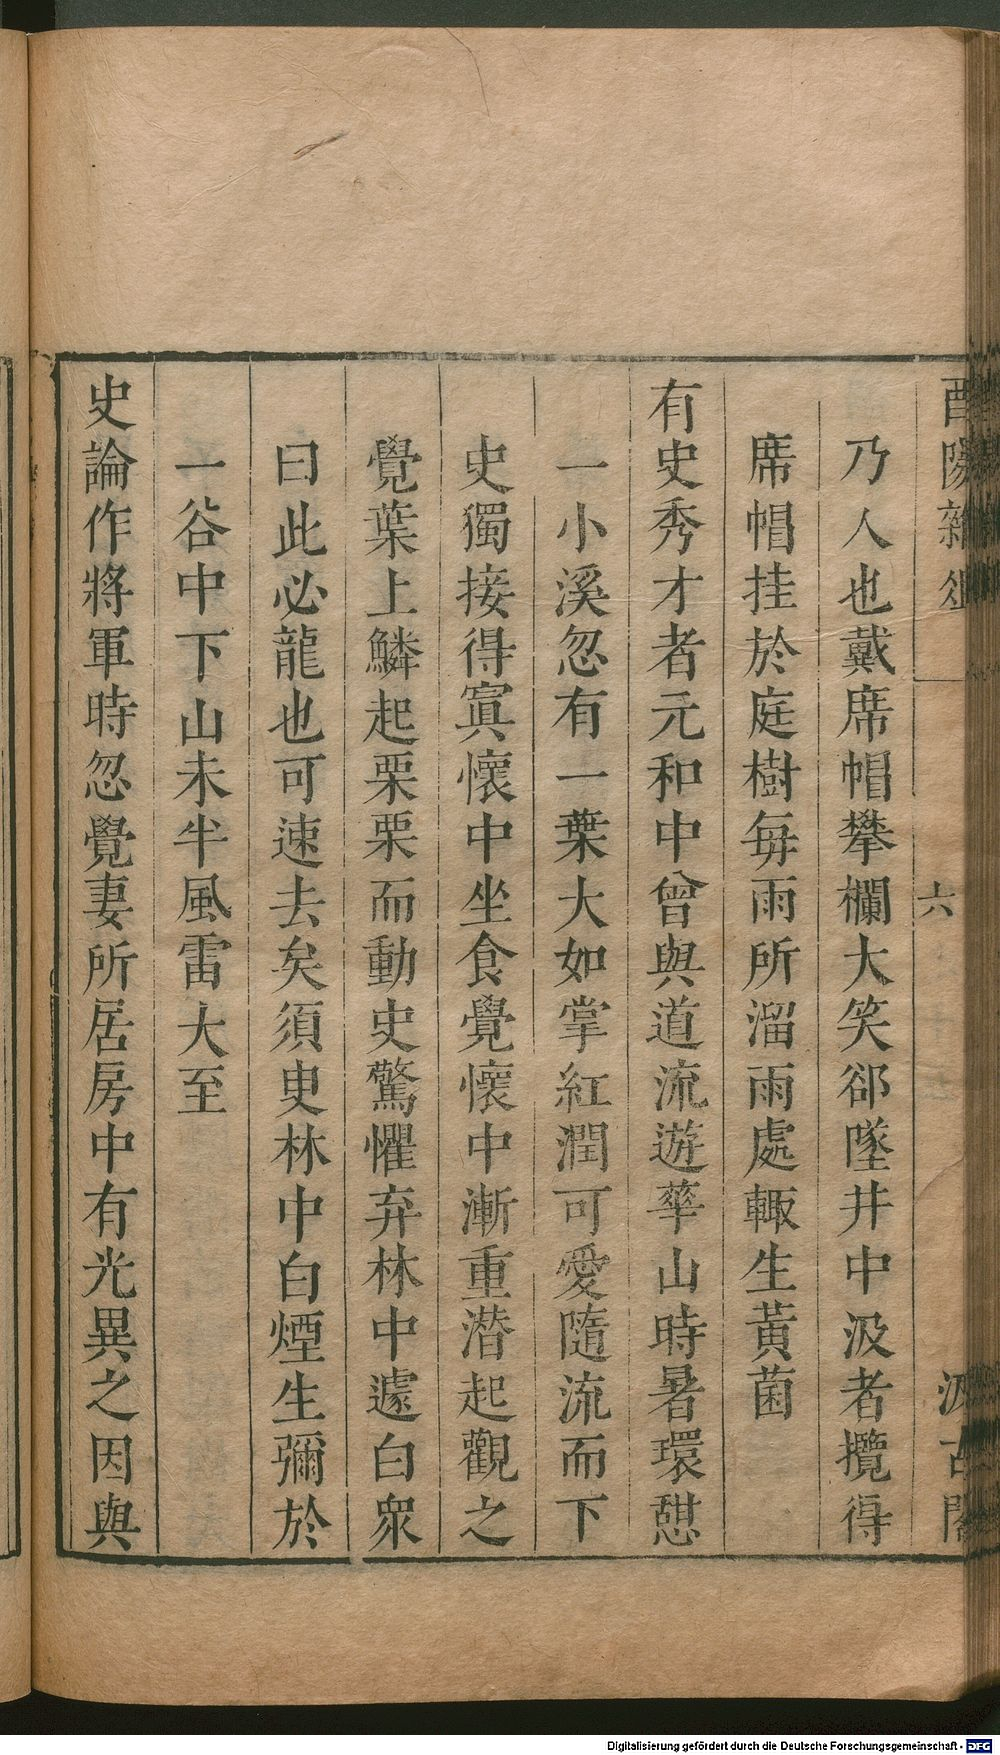 酉陽雜俎
六
汲古閣
乃人也戴席帽攀欄大笑郤墜井中汲者攬得
席帽挂於庭樹每雨所溜雨處輙生黃菌
有史秀才者元和中曾與道流遊華山時暑環憇
一小溪忽有一葉大如掌紅潤可愛隨流而下
史獨接得寘懷中坐食覺懷中漸重潜起觀之
覺葉上鱗起栗栗而動史驚懼弃林中遽白衆
曰此必龍也可速去矣須叓林中白煙生彌於
一谷中下山未半風雷大至
史論作將軍時忽覺妻所居房中有光異之因與
Digitalisierung gefördert durch die Deutsche Forschungsgemeinschaft - DFG